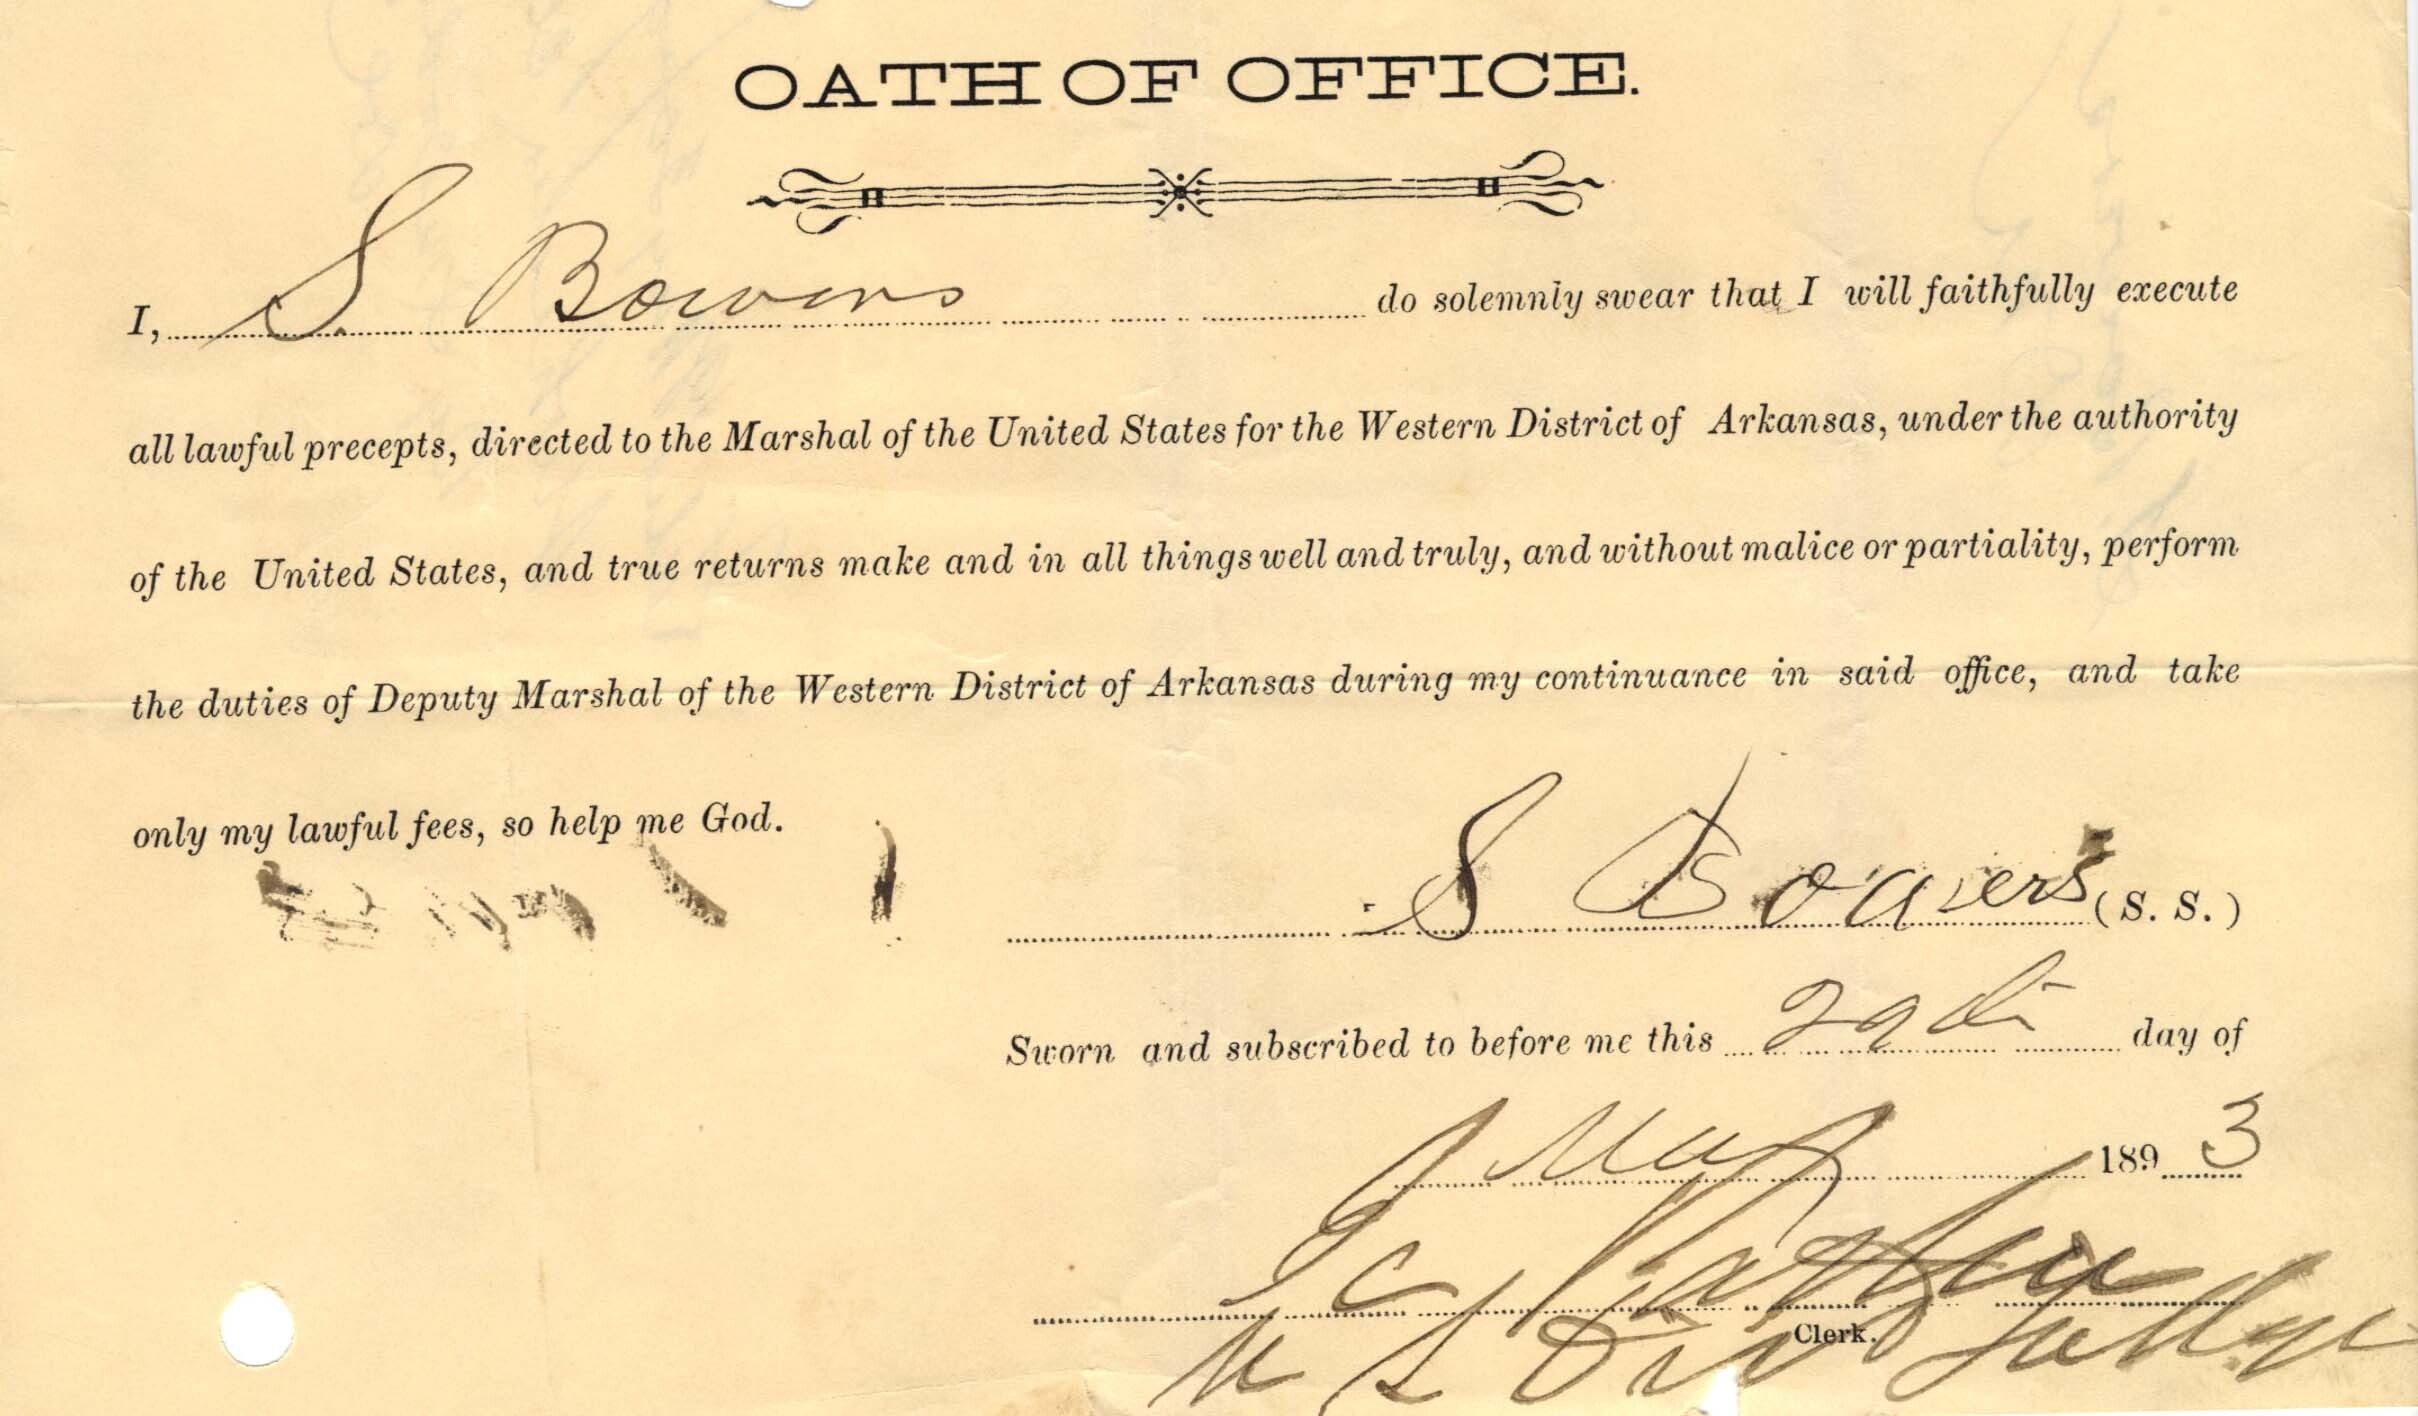 OATH OF OFFICE.
I, S. Bowers do solemnly swear that I will faithfully execute
all lawful precepts, directed to the Marshal of the United States for the Western District of Arkansas, under the authority
of the United States, and true returns make and in all things well and truly, and without malice or partiality, perform
the duties of Deputy Marshal of the Western District of Arkansas during my continuance in said office, and take
only my lawful fees, so help me God.
S Bowers (S. S.)
Sworn and subscribed to before me this 29th day of
May 1893
I C Parker
Clerk.
U S Dis Judge